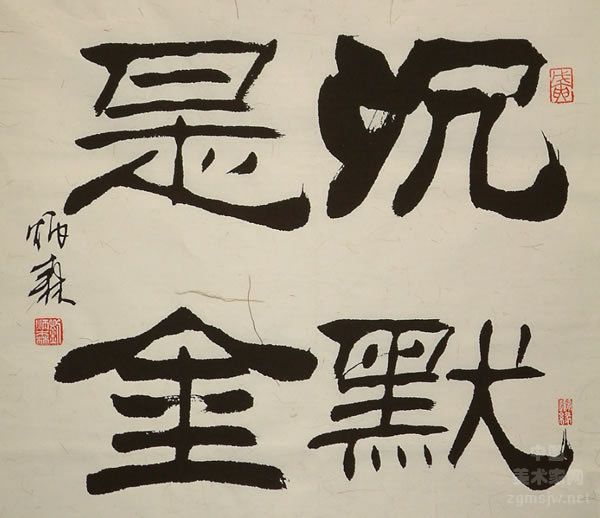 沉默
是金
炳森
中国
美术家网
zgmsjw.net